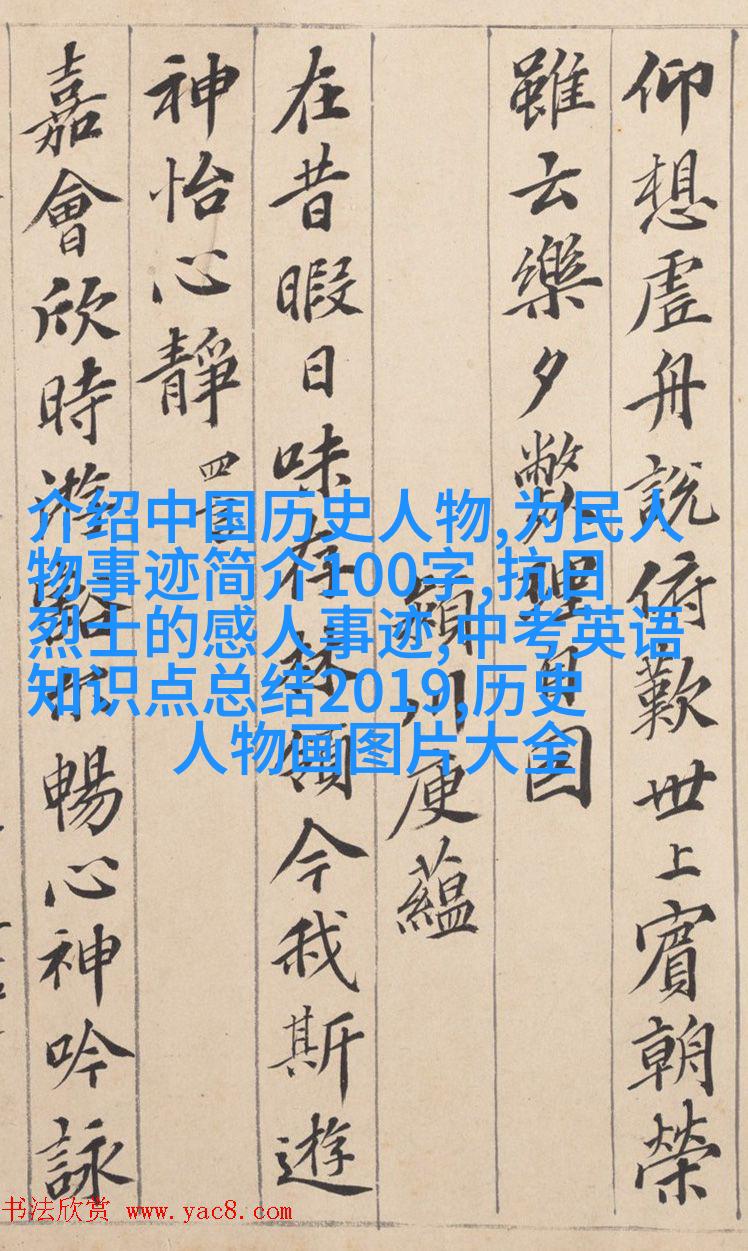 仰想虛舟說俯歎世上賓朝榮
雖云樂夕弊理自因
潁川庾蘊
在昔暇日味存林嶺今我斯遊
神怡心靜 四言
嘉會欣時游豁尓暢心神吟詠
介绍中国历史人物,为民人
物事迹简介100字,抗日
烈士的感人事迹,中考英语
知识点总结2019,历史
人物画图片大全
书法欣赏 www.yac8.com